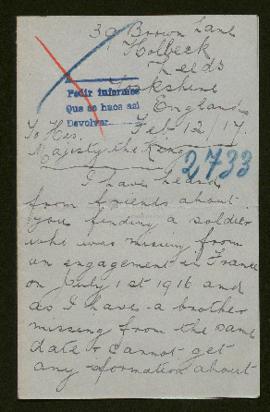 39 Brown Lane
Holbeck
Leeds
Yorkshire
England
Pedir informes
Que se haos asi
Devolver.
Feb 12. 17.
To His
Majesty the King
2733
I have heard
from friends about
you finding a soldier
who was missing from
an engagement in France
on July 1st 1916 and
as I have a brother
missing from the same
date & cannot get
any information about